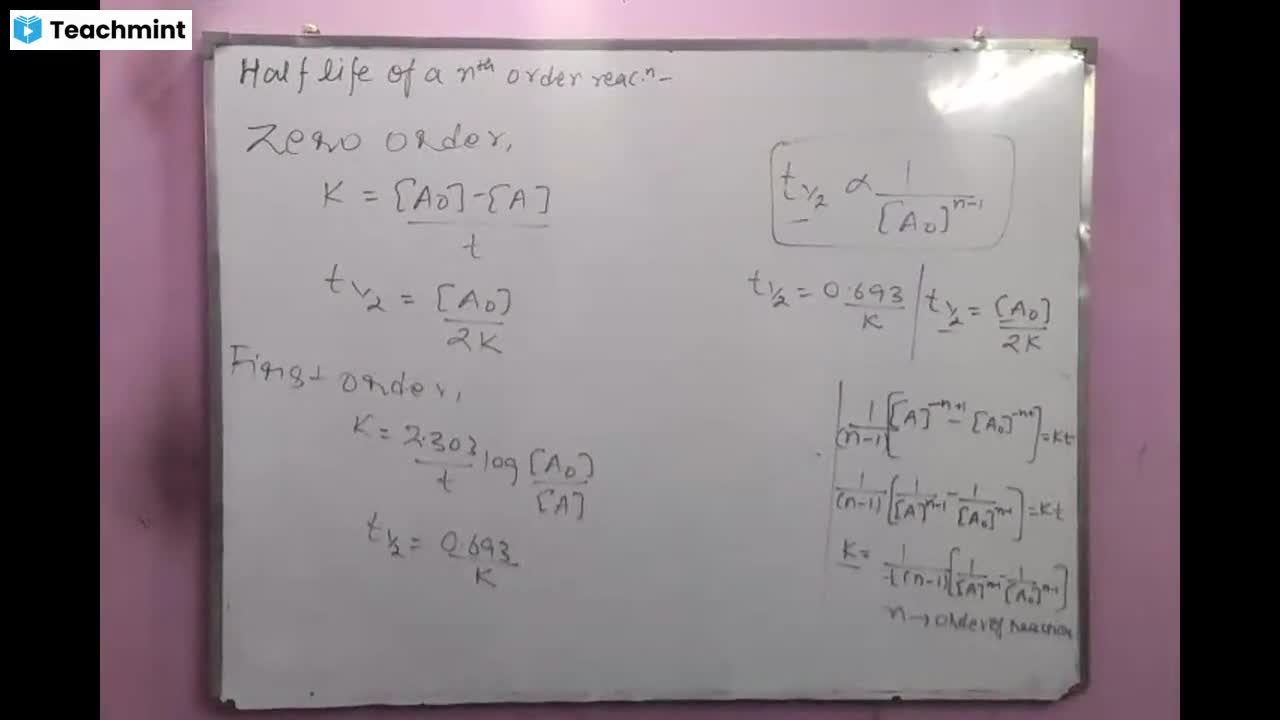 Teachmint
Half life of a nth order reacn-
Zero order,
K = [A0]-[A] / t
t1/2 = [A0] / 2K
First order,
K = 2.303 / t log [A0] / [A]
t1/2 = 0.693 / K
t1/2 ∝ 1 / [A0]^n-1
t1/2 = 0.693 / K | t1/2 = [A0] / 2K
1 / (n-1) [[A]^-n+1 - [A0]^-n+1] = Kt
1 / (n-1) [1 / [A]^n-1 - 1 / [A0]^n-1] = Kt
K = 1 / t(n-1) [1 / [A]^n-1 - 1 / [A0]^n-1]
n → order of reaction